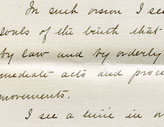 In such vision I see
souls of the truth that
by law and by orderly
mediate acts and proce
movements.
I see a time in